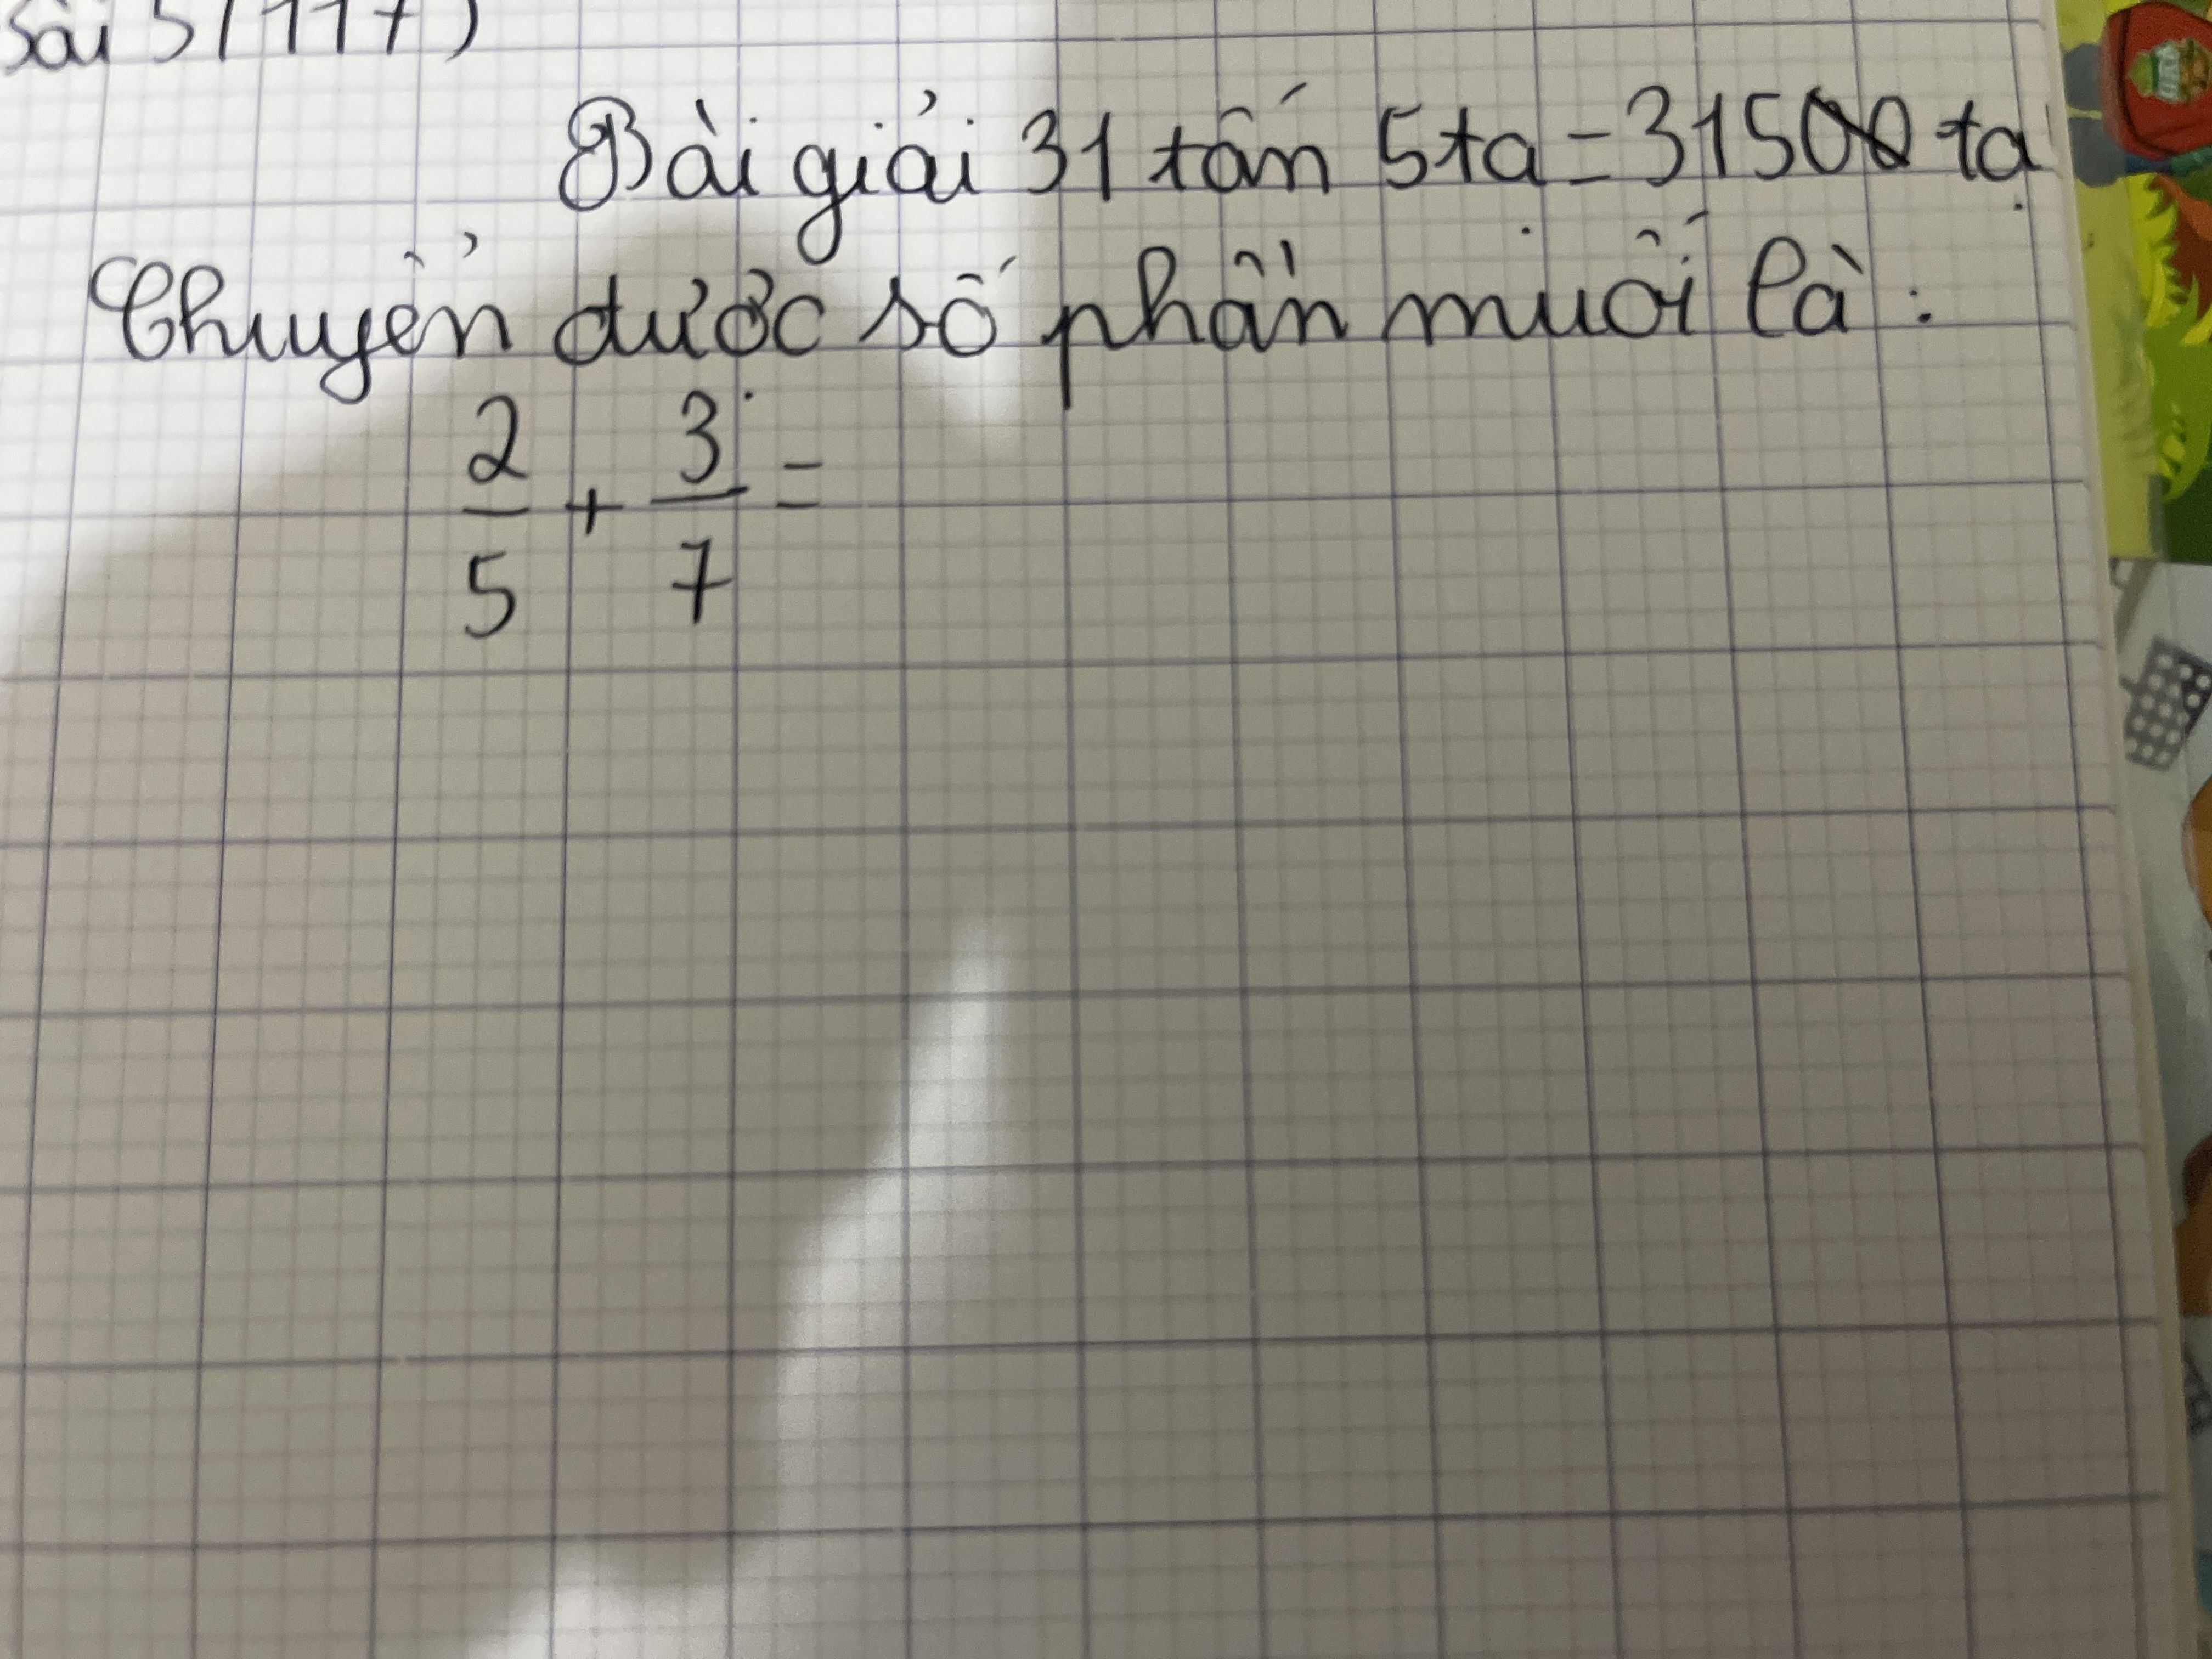 Bài 5 (117)
Bài giải 31 tấn 5 tạ = 31500 tạ
Chuyển được số phần muối là:
2/5 + 3/7 =